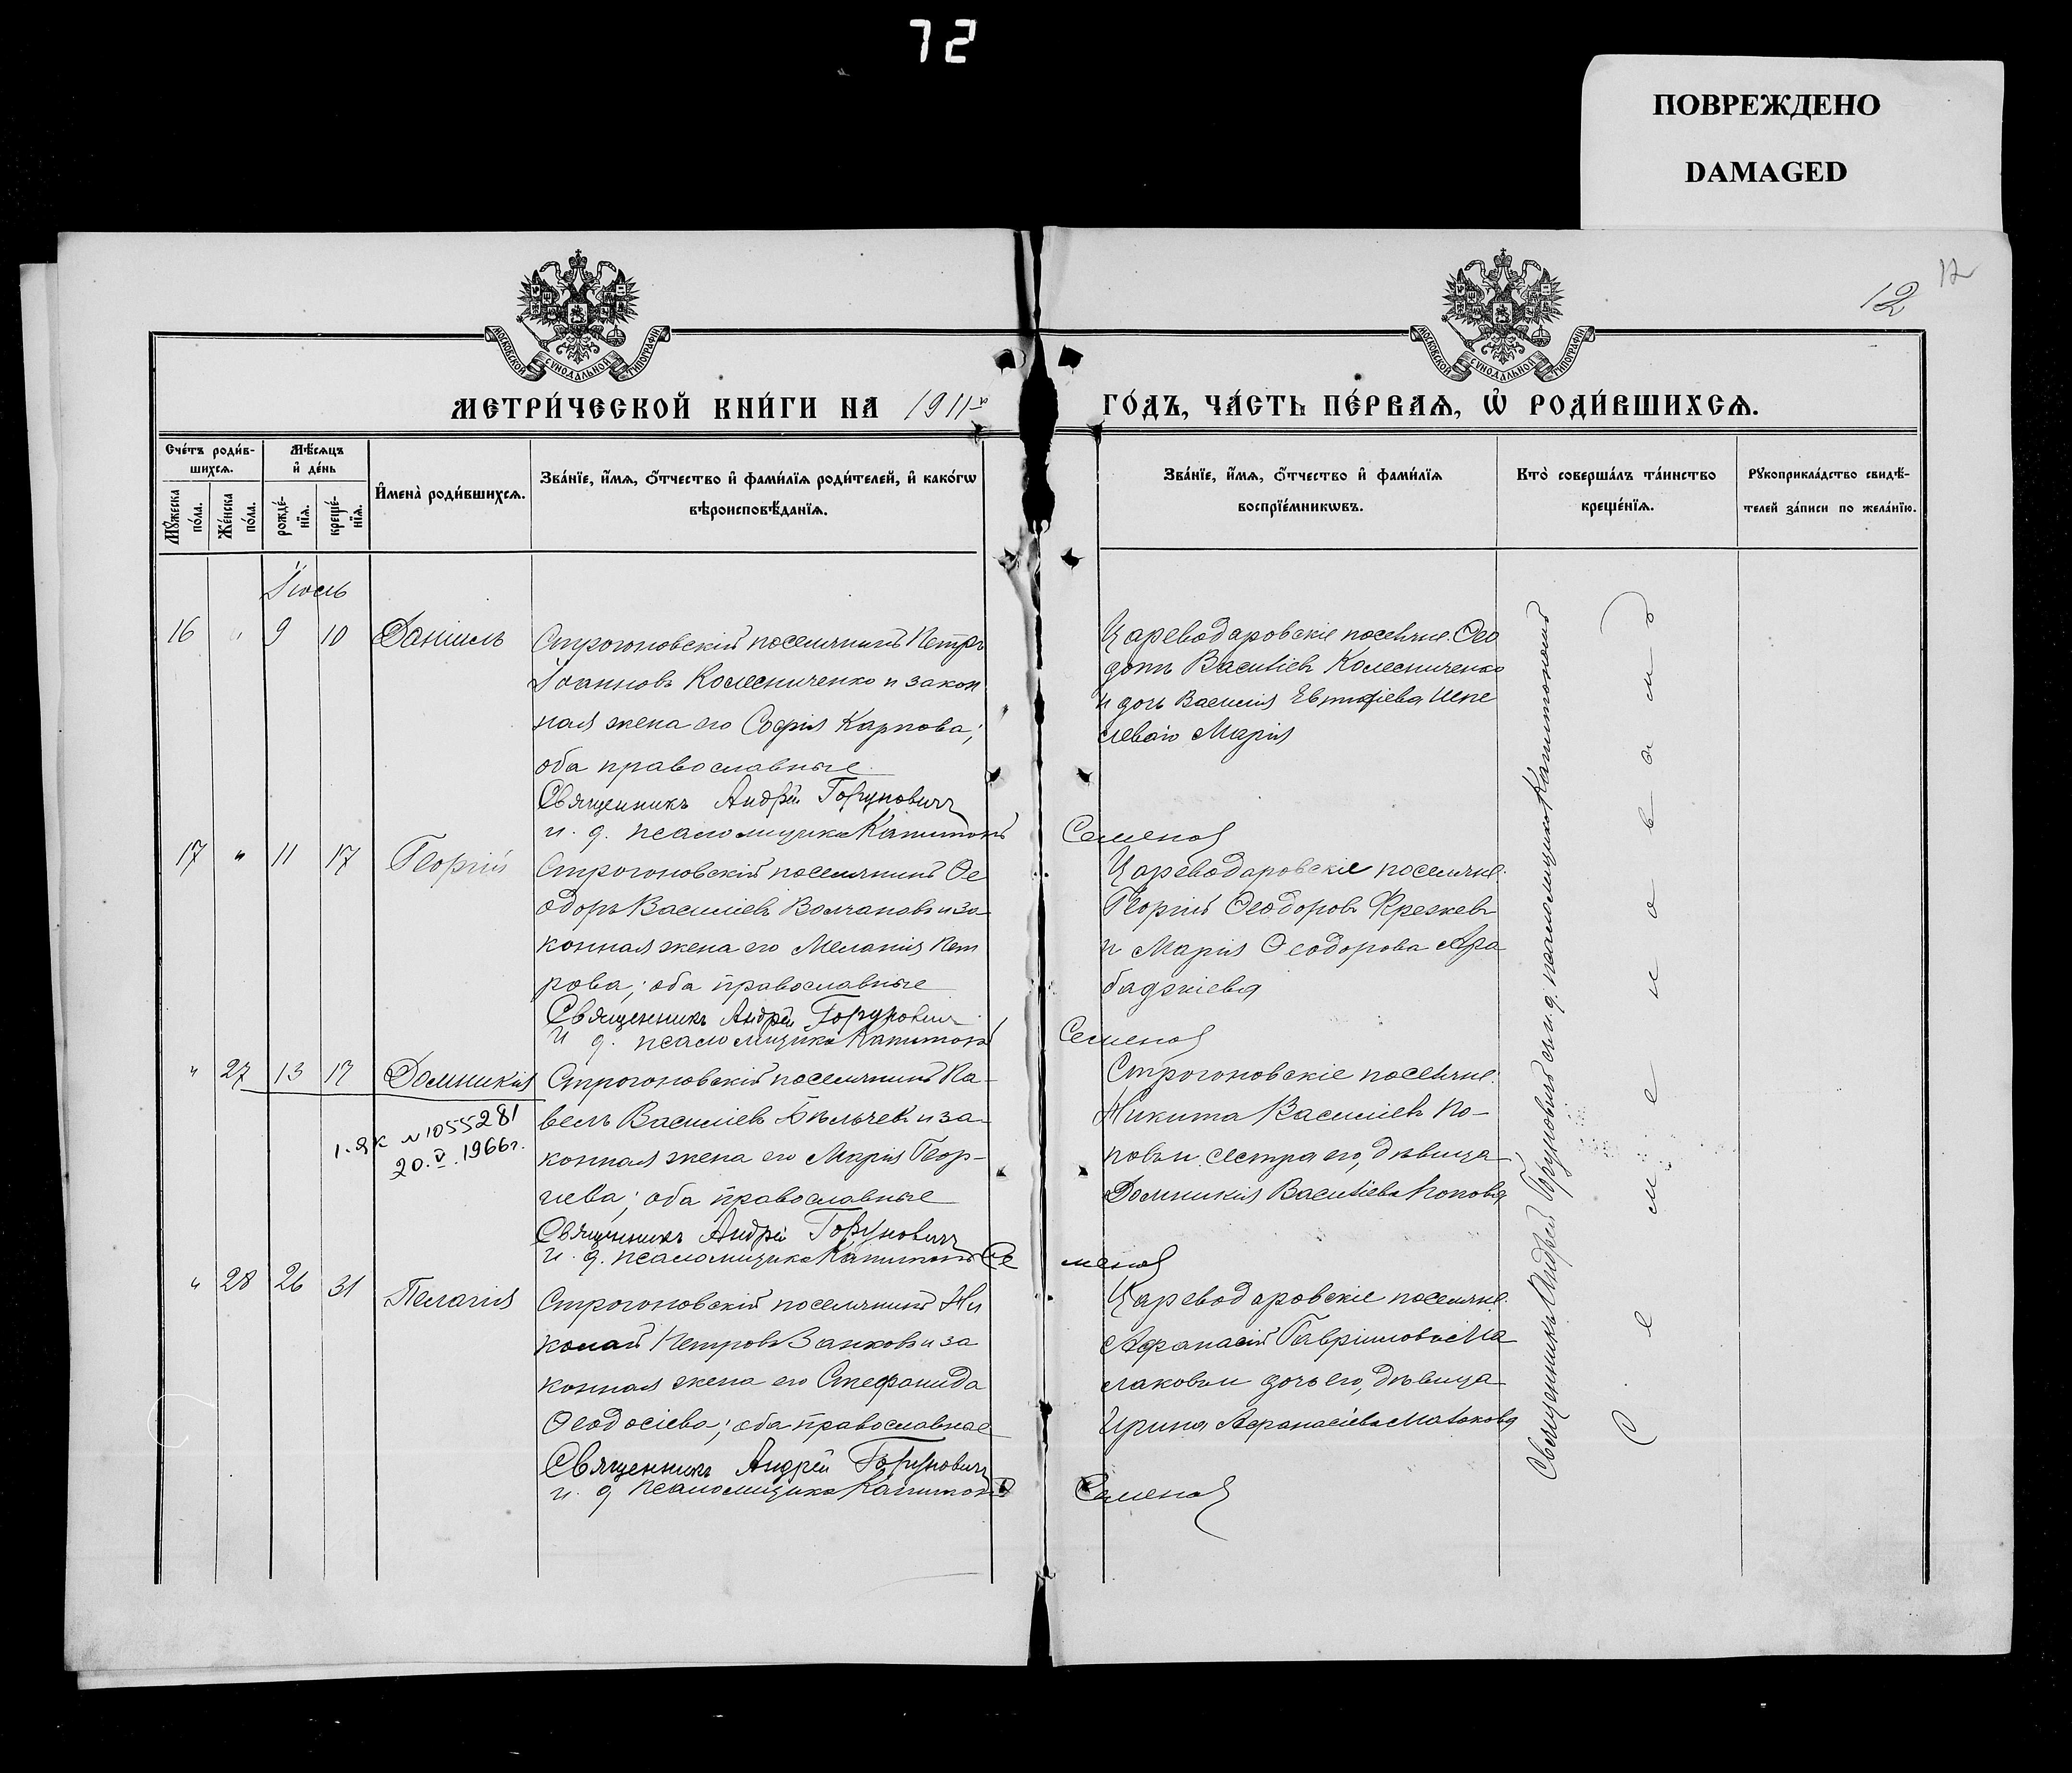 72
ПОВРЕЖДЕНО
DAMAGED
12
12
МОСКОВСКОЙ СУНОДАЛЬНОЙ ТИПОГРАФІИ
МОСКОВСКОЙ СУНОДАЛЬНОЙ ТИПОГРАФІИ
МЕТРИ́ЧЕСКОЙ КНИ́ГИ НА 1911й
ГО́ДЪ, ЧА́СТЬ ПЕ́РВАѦ, Ѡ҆ РОДИ́ВШИХСѦ.
Сче́тъ роди́в-
шихсѧ.
Мѣ́сѧцъ
и҆ де́нь
Мꙋ́жеска
по́ла.
Же́нска
по́ла.
рожде́-
нїѧ.
креще́-
нїѧ.
И҆мена̀ роди́вшихсѧ.
Зва́нїе, и҆́мѧ, ѻ҆́тчество и҆ фами́лїѧ роди́телей, и҆ како́гѡ
вѣроисповѣ́данїѧ.
Зва́нїе, и҆́мѧ, ѻ҆́тчество и҆ фами́лїѧ
воспрїе́мникѡвъ.
Кто̀ соверша́лъ та́инство
креще́нїѧ.
Рꙋкоприкла́дство свидѣ́-
телей за́писи по жела́нїю.
Іюль
16 " 9 10 Даніилъ Строгоновскій поселянинъ Петръ
Іоанновъ Колесниченко и закон
ная жена его Софія Карпова;
оба православные
Священникъ Андрей Горунович
и. д. псаломщика Капитонъ Семенов
Цареводаровскіе поселяне: Ѳео
дотъ Василіевъ Колесниченко
и дочь Василія Евтиміева Шпе
левой Марія
17 " 11 17 Георгій Строгоновскій поселянинъ Ѳе
одоръ Василіевъ Волчановъ и за
конная жена его Меланія Пет
рова; оба православные
Священникъ Андрей Горунович
и д. псаломщика Капитонъ Семенов
Цареводаровскіе поселяне:
Георгій Ѳеодоровъ Крезжевъ
и Марія Ѳеодорова Ара
баджіева
" 27 13 17 Домникія Строгоновскій поселянинъ Па-
велъ Василіевъ Бѣльчевъ и за-
конная жена его Марія Геор-
гіева; оба православные
Священникъ Андрей Горунович
и. д. псаломщика Капитонъ Семенов
1-ЯК №1055281
20.V.1966г.
Строгоновскіе поселяне:
Никита Василіевъ По-
повъ и сестра его, дѣвица
Домникія Василіева Попова
" 28 26 31 Пелагія Строгоновскій поселянинъ Ни
колай Петровъ Занковъ и за
конная жена его Стефанида
Ѳеодосіева; оба православные
Священникъ Андрей Горунович
и. д псаломщика Капитонъ Семенов
Цареводаровскіе поселяне:
Афанасій Гавріиловъ Ма
лаковъ и дочь его, дѣвица
Ирина Афанасіева Малакова
Священникъ Андрей Горуновичъ съ и. д. псаломщика Капитономъ
Семеновымъ